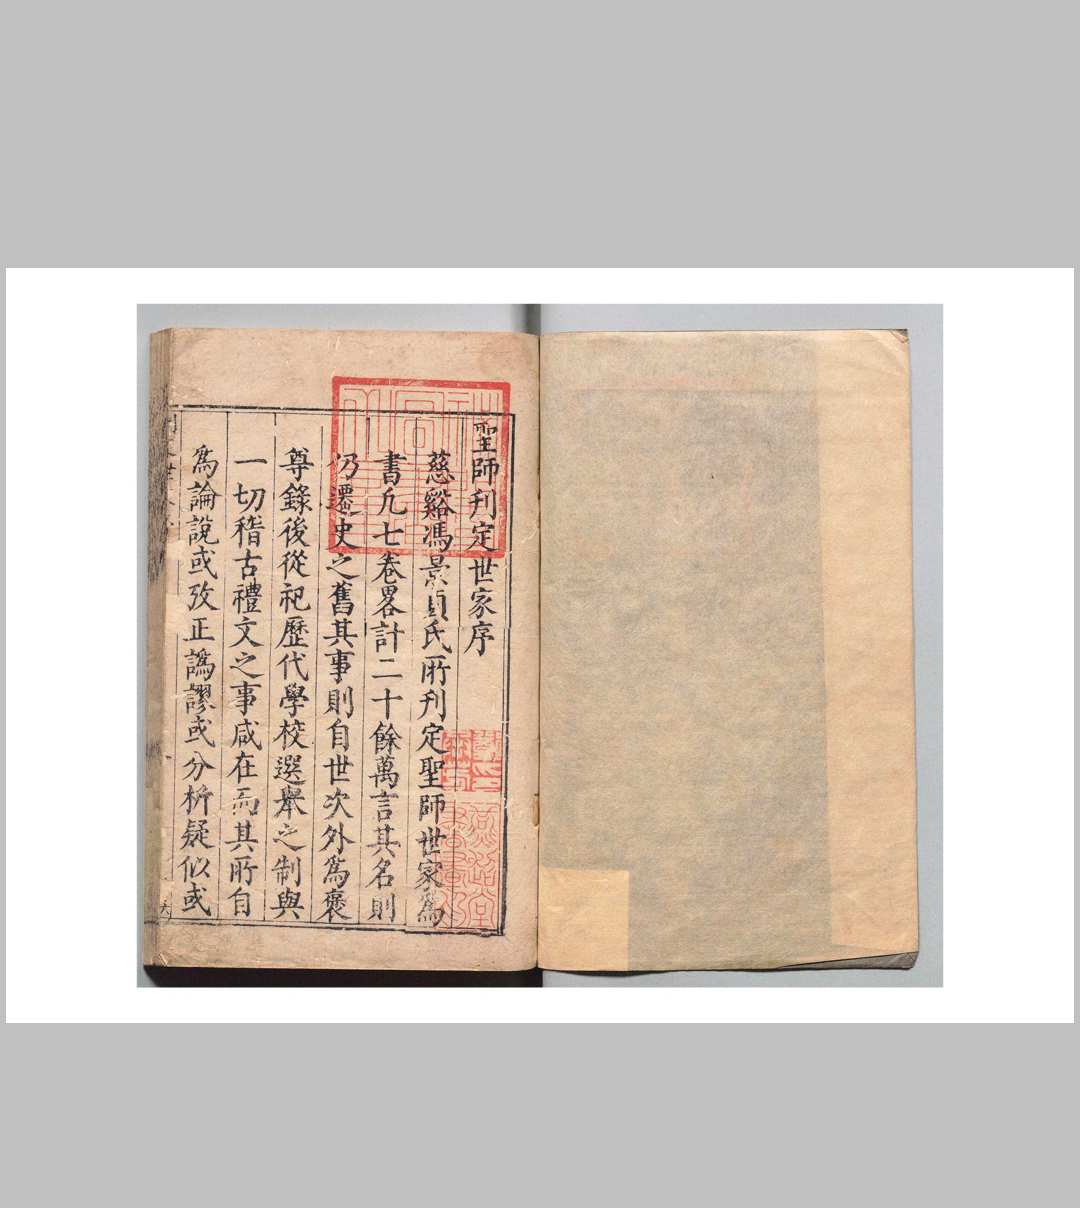 聖師刋定世家序
慈谿馮景貞氏所刋定聖師世家爲
書凢七卷畧計二十餘萬言其名則
仍遷史之舊其事則自世次外爲褒
尊錄後從祀歷代學校選舉之制與
一切稽古禮文之事咸在焉其所自
爲論說或攷正譌謬或分析疑似或